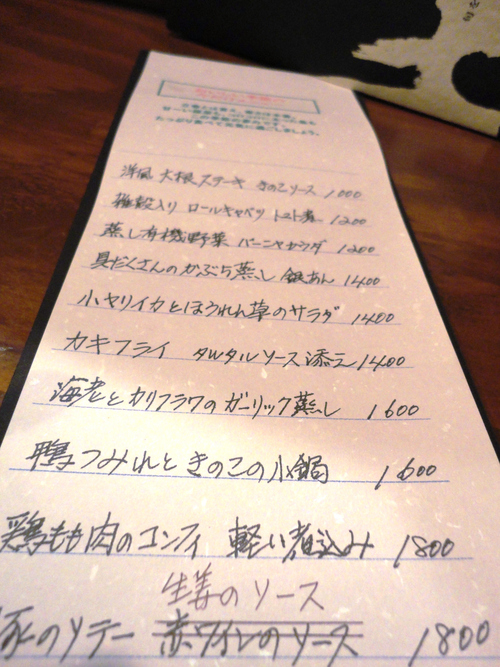 洋風 大根ステーキ きのこソース 1000
雑穀入り ロールキャベツ トマト煮 1200
蒸し有機野菜 バーニャカウダ 1200
具だくさんのかぶら蒸し 銀あん 1400
小ヤリイカとほうれん草のサラダ 1400
カキフライ タルタルソース添え 1400
海老とカリフラワのガーリック蒸し 1600
鴨つみれときのこの小鍋 1600
鶏もも肉のコンフィ 軽い煮込み 1800
生姜のソース
豚のソテー 赤ワインのソース 1800